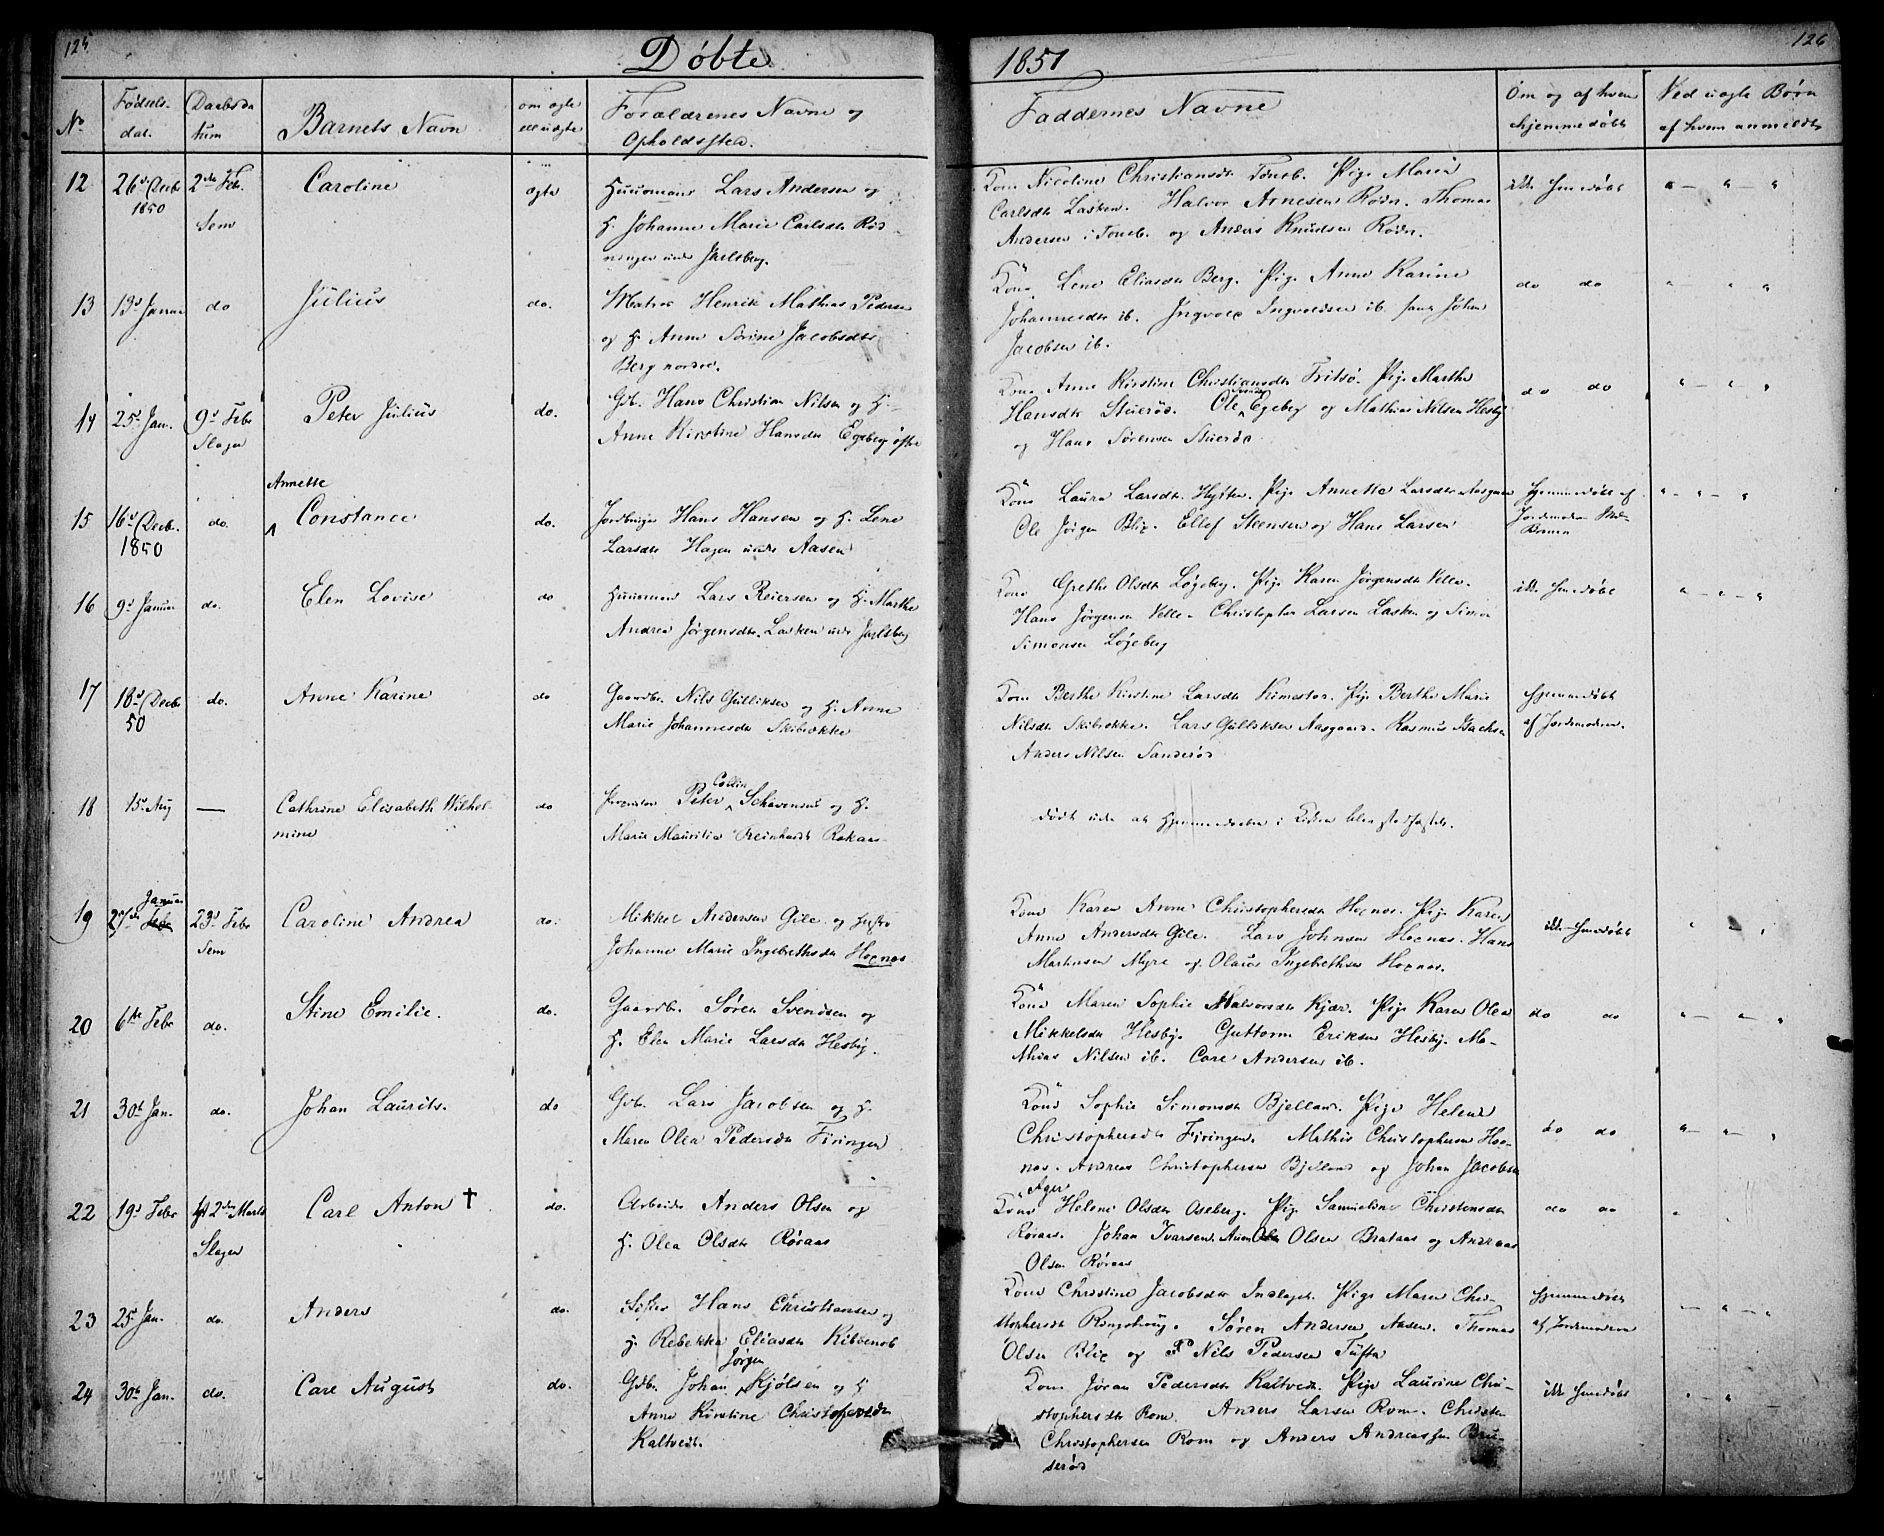 125
Døbte
1851
126
No
Fødsels-
dat.
Daabsda
tum
Barnets Navn
om ægte
ell uægte
Forældrenes Navne og
Opholdssted.
Faddernes Navne
Om og af hvem
hjemmedøbt
Ved uægte Børn
af hvem anmeldt
12
26d Decb
1850
2den Febr.
Sem
Caroline
ægte
Huusmand Lars Andersen og
H. Johanne Marie Carlsdtr Rød
ninger under Jarlsberg.
Kone Nicoline Christiansdtr Tønsb. Pige Maria
Carlsdtr Lasken. Halvor Arnesen Rødn. Thomas
Andersen i Tønsb. og Anders Knudsen Rødn.
ikke hjmedøbt
13
19d Januar
do
Julius
do.
Matros Henrik Mathias Pedersen
og H. Anne Sørine Jacobsdtr
Berg nordre.
Kone Lene Eliasdtr Berg. Pige Anne Karine
Johannesdtr ib. Ingvold Ingvoldsen ib. samt Johan
Jacobsen ib.
do do
14
25d Jan.
9d Febr
Slagen
Peter Julius
do.
Gdb. Hans Christian Nilsen og H.
Anne Kirstine Hansdtr Egeberg østre
Kone Anne Kirstine Christiansdtr Fritsø. Pige Marthe
Hansdtr Stuerød. Ole Egeberg og Mathias Nilsen Hesby
og Hans Sørensen Stuerød
do do
15
16d Decb.
1850
do.
Annette
Constance
do.
Jordbruger Hans Hansen og H. Lene
Larsdtr Hagen under Aasen
Kone Laura Larsdtr Hysten. Pige Annette Larsdtr Aasgaar
Ole Jørgen Blix. Ellef Steensen og Hans Larsen
Hjemmedøbt af
Jordmodren
16
9d Januar
do.
Elen Lovise
do
Huusmand Lars Reiersen og H. Marthe
Andrea Jørgensdtr. Lasken under Jarlsberg
Kone Grethe Olsdtr Løgeberg. Pige Karen Jørgensdtr Velle.
Hans Jørgensen Velle. Christopher Larsen Lasken og Simon
Simonsen Løgeberg
ikke hjmedøbt
17
18d Decbr
50
do.
Anne Karine
do
Gaardbr. Nils Gulliksen og H. Anne
Marie Johannesdtr Skibrække
Kone Berthe Kirstine Larsdtr Kimestad. Pige Berthe Marie
Nilsdtr Skibrække. Lars Gulliksen Aasgaard. Rasmus
Anders Nilsen Sanderød
Hjemmedøbt
af Jordemodren.
18
15d Aug
—
Cathrine Elisabeth Wilhel-
mine
do
Peter Collin og H.
Marie Mauritia Reinhardt
Død uden at Hjemmedaaben i Kirken blev stadfæstet.
19
Januar
27de Febr
23d Febr
Sem
Caroline Andrea
do.
Mikkel Andersen Gile og Hustru
Johanne Marie Ingebrethsdtr Hognes
Kone Karen Anne Christophersdtr Hognes. Pige Karen
Anne Andersdtr Gile. Lars Johnsen Hognes. Hans
Martinsen Myre og Olaus Ingebrethsen Hognes.
ikke hjmedøbt
20
6te Febr
do.
Stine Emilie.
do.
Gaardbr. Søren Svendsen og
H. Elen Marie Larsdtr Hesby.
Kone Maren Sophie Halvorsdtr Kjær. Pige Karen Olea
Mikkelsdtr Hesby. Guttorm Eriksen Hesby. Ma-
thias Nilsen ib. Carl Andersen ib.
do do
21
30t Jan.
do.
Johan Laurits.
do
Gdb. Lars Jacobsen og H.
Maren Olea Pedersdtr Firingen
Kone Sophie Simonsdtr Bjelland. Pige Helene
Christophersdtr Firingen. Mathis Christophersen Hog-
nes. Andreas Christophersen Bjelland og Johan Jacobsen
Ager
do do
22
19d Febr
2den Marts
Slagen
Carl Anton †
do.
Arbeider Anders Olsen og
H. Olea Olsdtr Røraas
Kone Helene Olsdtr Oseberg. Pige Samueline Christensdtr
Røraas. Johan Ivarsen Auen Olsen Brataas og Andreas
Olsen Røraas
do do
23
25 Jan.
do.
Anders
do.
Hans Christiansen og
H. Rebekka Eliasdtr
Kone Christine Jacobsdtr. Pige Maren Chri-
stophersdtr Ringshoug. Søren Andersen Aasen. Thomas
Olsen Blix og Nils Pedersen Tufte
Hjemmedøbt
af Jordemodren
24
30t Jan.
do.
Carl August
do.
Gdb. Johan Jørgen Kjølsen og H
Anne Kirstine Christofersdtr
Kaltvedt.
Kone Jøran Pedersdtr Kaltvedt. Pige Laurine Chri-
stophersdtr Rom. Anders Larsen Rom. Christen
Christophersen Rom og Anders Andreassen Bru-
serød
ikke hjmedøbt